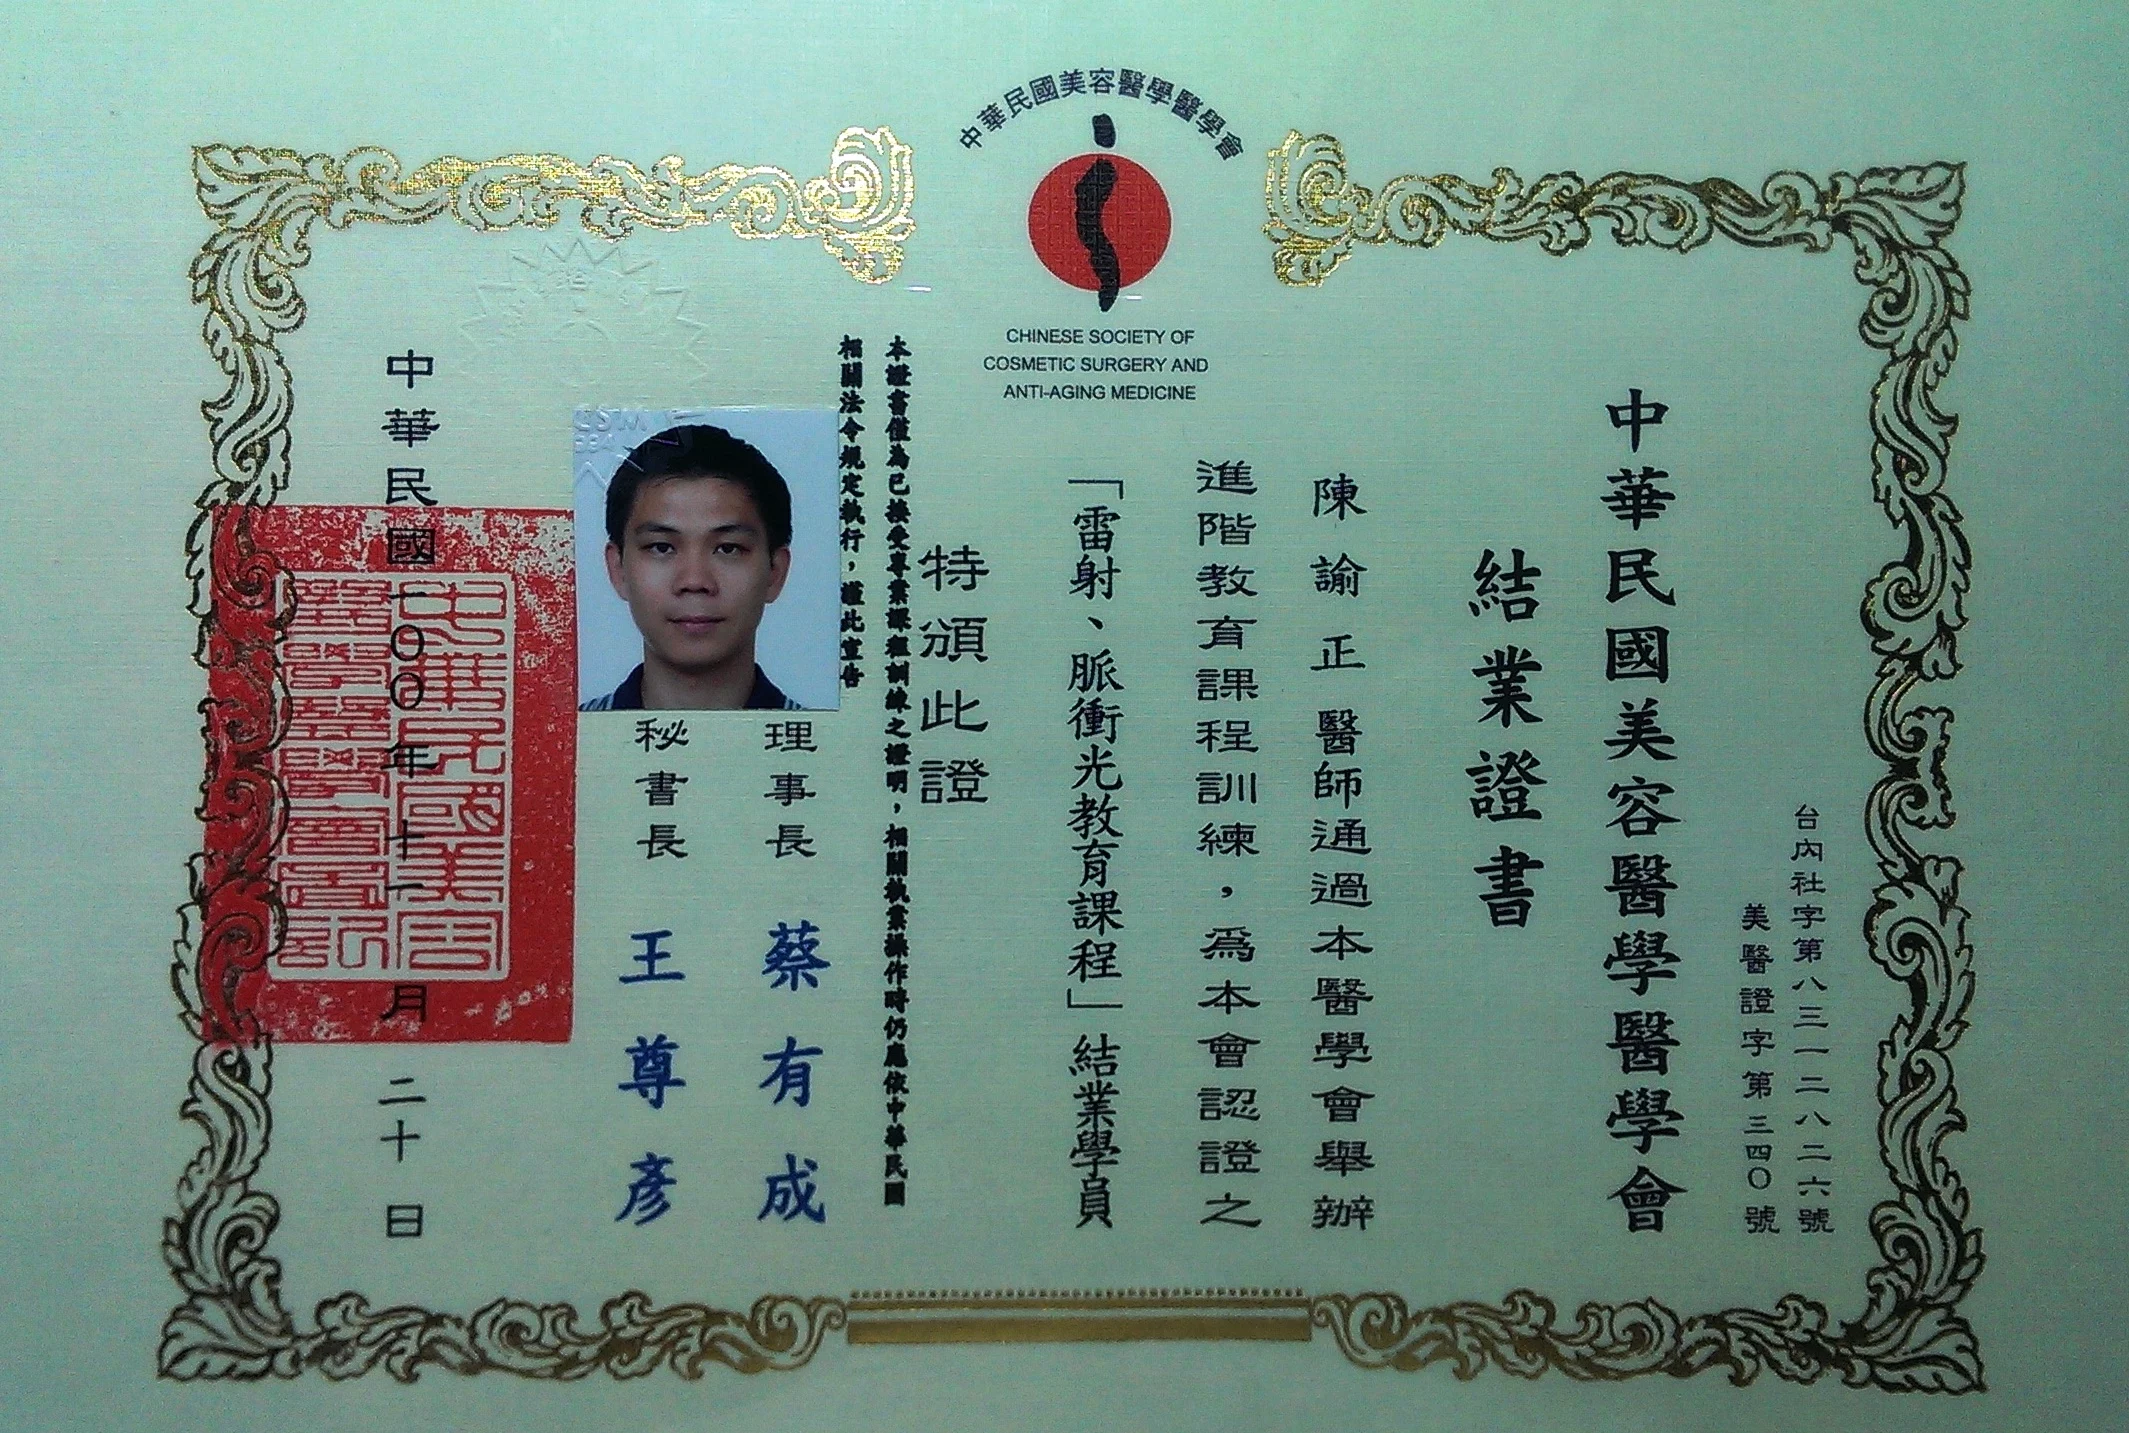 中華民國美容醫學醫學會
CHINESE SOCIETY OF
COSMETIC SURGERY AND
ANTI-AGING MEDICINE
台內社字第八三一二八二六號
美醫證字第三四〇號
中華民國美容醫學醫學會
結業證書
陳諭正醫師通過本醫學會舉辦
進階教育課程訓練，為本會認證之
「雷射、脈衝光教育課程」結業學員
特頒此證
本證書僅為已接受專業課程訓練之證明，相關執業操作時仍應依中華民國
相關法令規定執行，謹此宣告
理事長 蔡有成
秘書長 王尊彥
中華民國一〇〇年十一月二十日
中華民國美容
醫學醫學會